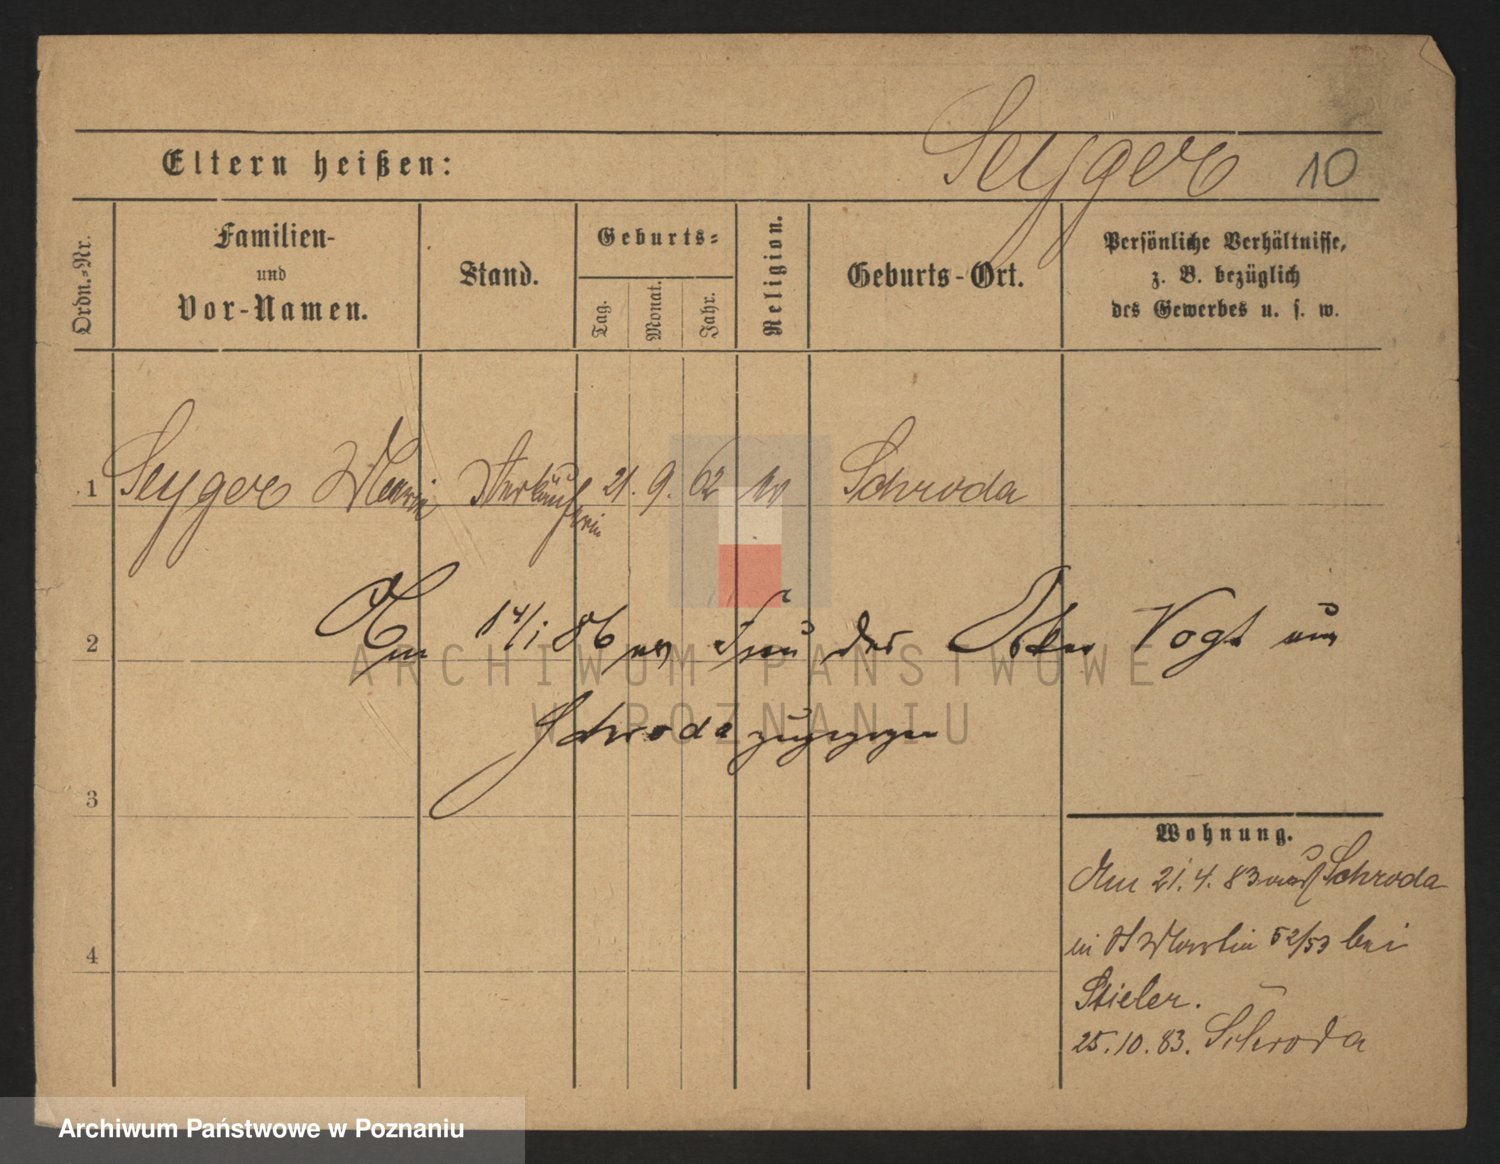 Seyger 10
Eltern heißen:
Ordn.-Nr.
Familien-
und
Vor-Namen.
Stand.
Geburts-
Tag.
Monat.
Jahr.
Religion.
Geburts-Ort.
Persönliche Verhältnisse,
z. B. bezüglich
des Gewerbes u. s. w.
1 Seyger Maria Verkäuferin 21. 9. 62 Schroda
2 Am 14/1 86 Frau des Oskar Vogt aus
Schroda zugezogen
3
Wohnung.
Am 21.4.83 aus Schroda
in St Martin 52/53 bei
4
Stieler.
25.10.83. Schroda
ARCHIWUM PAŃSTWOWE
W POZNANIU
Archiwum Państwowe w Poznaniu